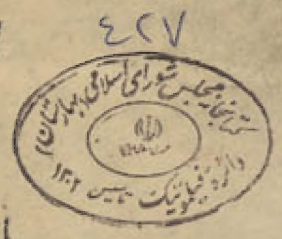 ٤٢٧
کتابخانه مجلس شورای اسلامی (بهارستان)
دائره فیلموتیک تاسیس ۱۳۰۲